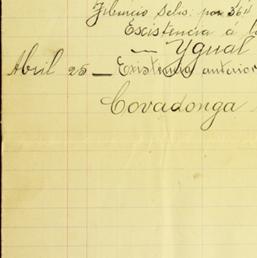 Tiburcio Selis: por 364
Excistencia a la
— Ygual
Abril 25 — Existencia anterior
Covadonga